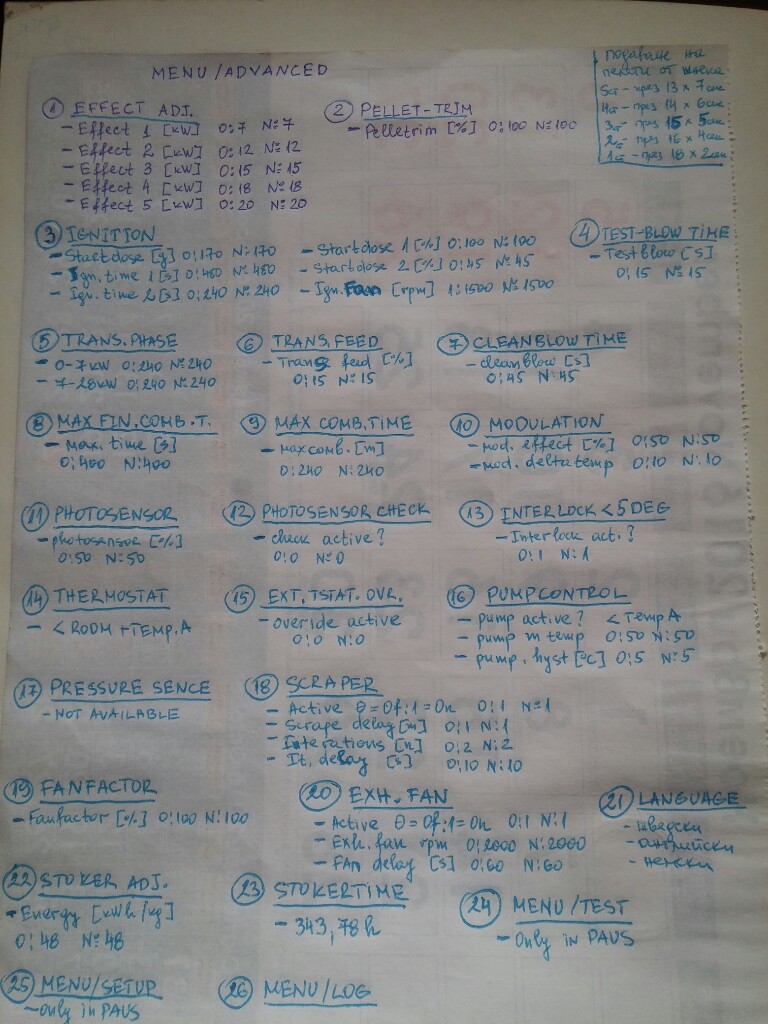 MENU/ADVANCED
подаване на
пелети от шнека
5ст - през 13 x 7 сек
4ст - през 14 x 6 сек
3ст - през 15 x 5 сек
2ст - през 16 x 4 сек
1ст - през 18 x 2 сек
1 EFFECT ADJ.
- Effect 1 [kW] O:7 N:7
- Effect 2 [kW] O:12 N:12
- Effect 3 [kW] O:15 N:15
- Effect 4 [kW] O:18 N:18
- Effect 5 [kW] O:20 N:20
2 PELLET-TRIM
- Pelletrim [%] O:100 N:100
3 IGNITION
- Startdose [g] O:170 N:170
- Ign. time 1 [s] O:480 N:480
- Ign. time 2 [s] O:240 N:240
- Startdose 1 [%] O:100 N:100
- Startdose 2 [%] O:45 N:45
- Ign. Fan [rpm] 1:1500 N:1500
4 TEST-BLOW TIME
- Testblow [s]
O:15 N:15
5 TRANS. PHASE
- 0-7kW O:240 N:240
- 7-28kW O:240 N:240
6 TRANS. FEED
- Trans feed [%]
O:15 N:15
7 CLEANBLOW TIME
- cleanblow [s]
O:45 N:45
8 MAX FIN. COMB. T.
- max. time [s]
O:400 N:400
9 MAX COMB. TIME
- maxcomb. [m]
O:240 N:240
10 MODULATION
- mod. effect [%] O:50 N:50
- mod. deltatemp O:10 N:10
11 PHOTOSENSOR
- photosensor [%]
O:50 N:50
12 PHOTOSENSOR CHECK
- check active?
O:0 N:0
13 INTERLOCK <5 DEG
- Interlock act.?
O:1 N:1
14 THERMOSTAT
- < ROOM +TEMP.A
15 EXT. TSTAT. OVR.
- override active
O:0 N:0
16 PUMPCONTROL
- pump active? < Temp A
- pump m temp O:50 N:50
- pump. hyst [°C] O:5 N:5
17 PRESSURE SENCE
- NOT AVAILABLE
18 SCRAPER
- Active 0=Of:1=On O:1 N:1
- Scrape delay [m] O:1 N:1
- Interations [n] O:2 N:2
- It. delay [s] O:10 N:10
19 FANFACTOR
- Fanfactor [%] O:100 N:100
20 EXH. FAN
- Active 0=Of:1=On O:1 N:1
- Exh. fan rpm O:2000 N:2000
- FAn delay [s] O:60 N:60
21 LANGUAGE
- шведски
- английски
- немски
22 STOKER ADJ.
- Energy [kWh/kg]
O:48 N:48
23 STOKERTIME
- 343,78h
24 MENU/TEST
- Only in PAUS
25 MENU/SETUP
- Only in PAUS
26 MENU/LOG